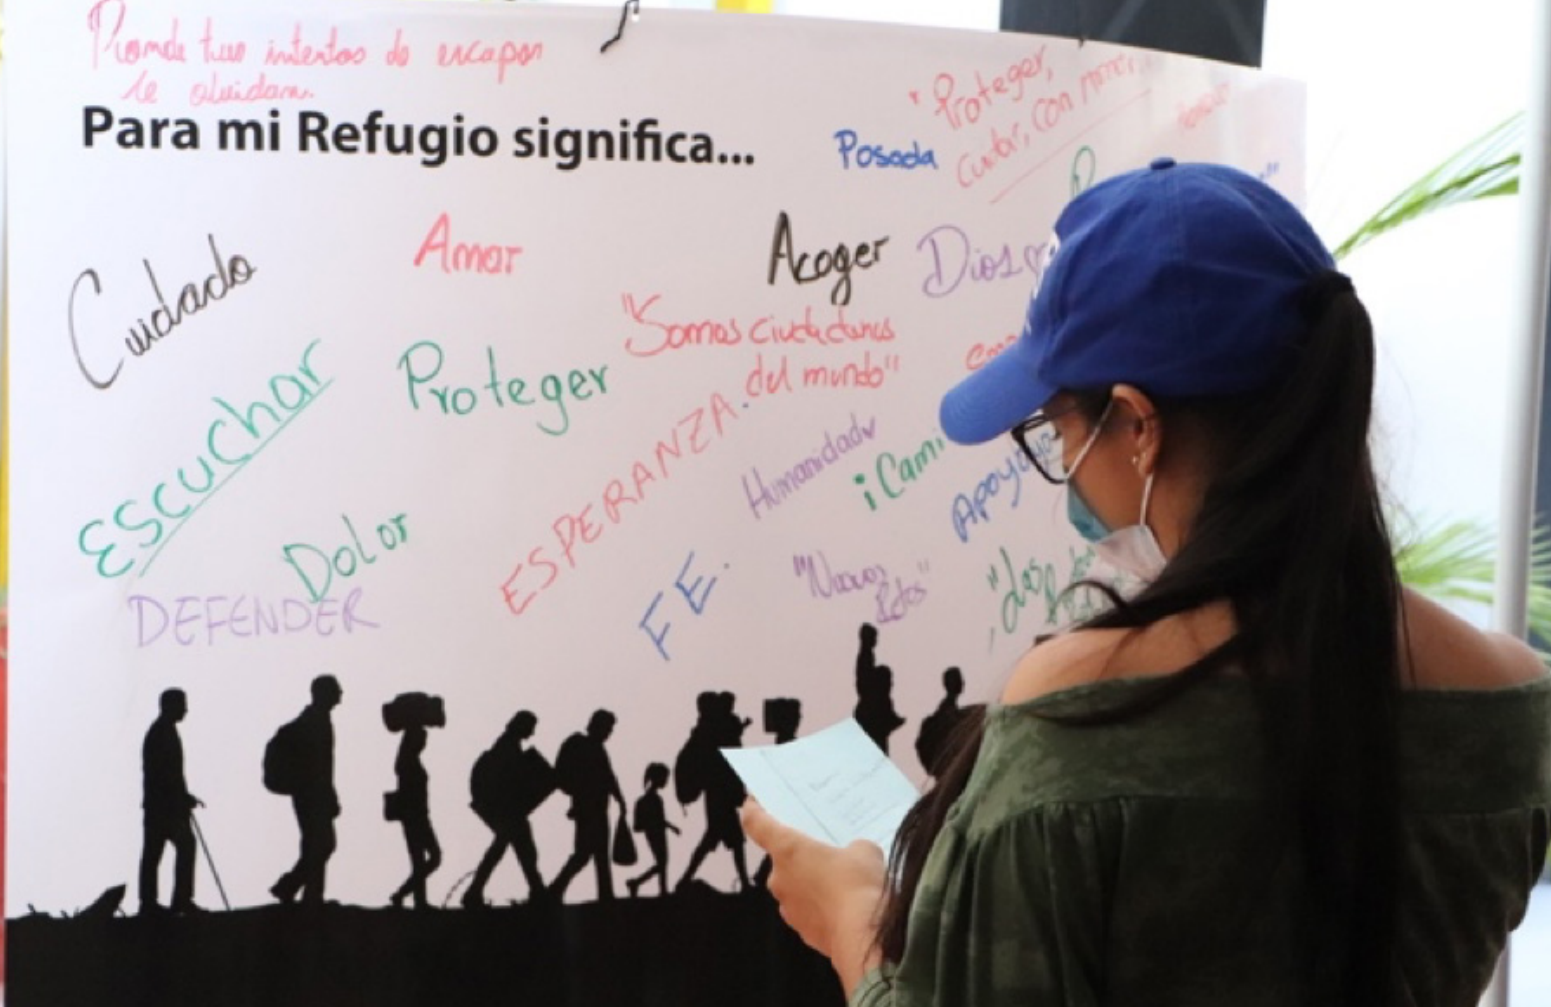 intentos de escapar
Para mi Refugio significa...
Posada
"Proteger,
Cuidar, con
Cuidado
Amar
Acoger
Dios
"Somos ciudadanos
del mundo"
Escuchar
Proteger
ESPERANZA.
Humanidad
¡Cami
Apoyo
Dolor
DEFENDER
FE.
"Nuevos
Retos"
"Las